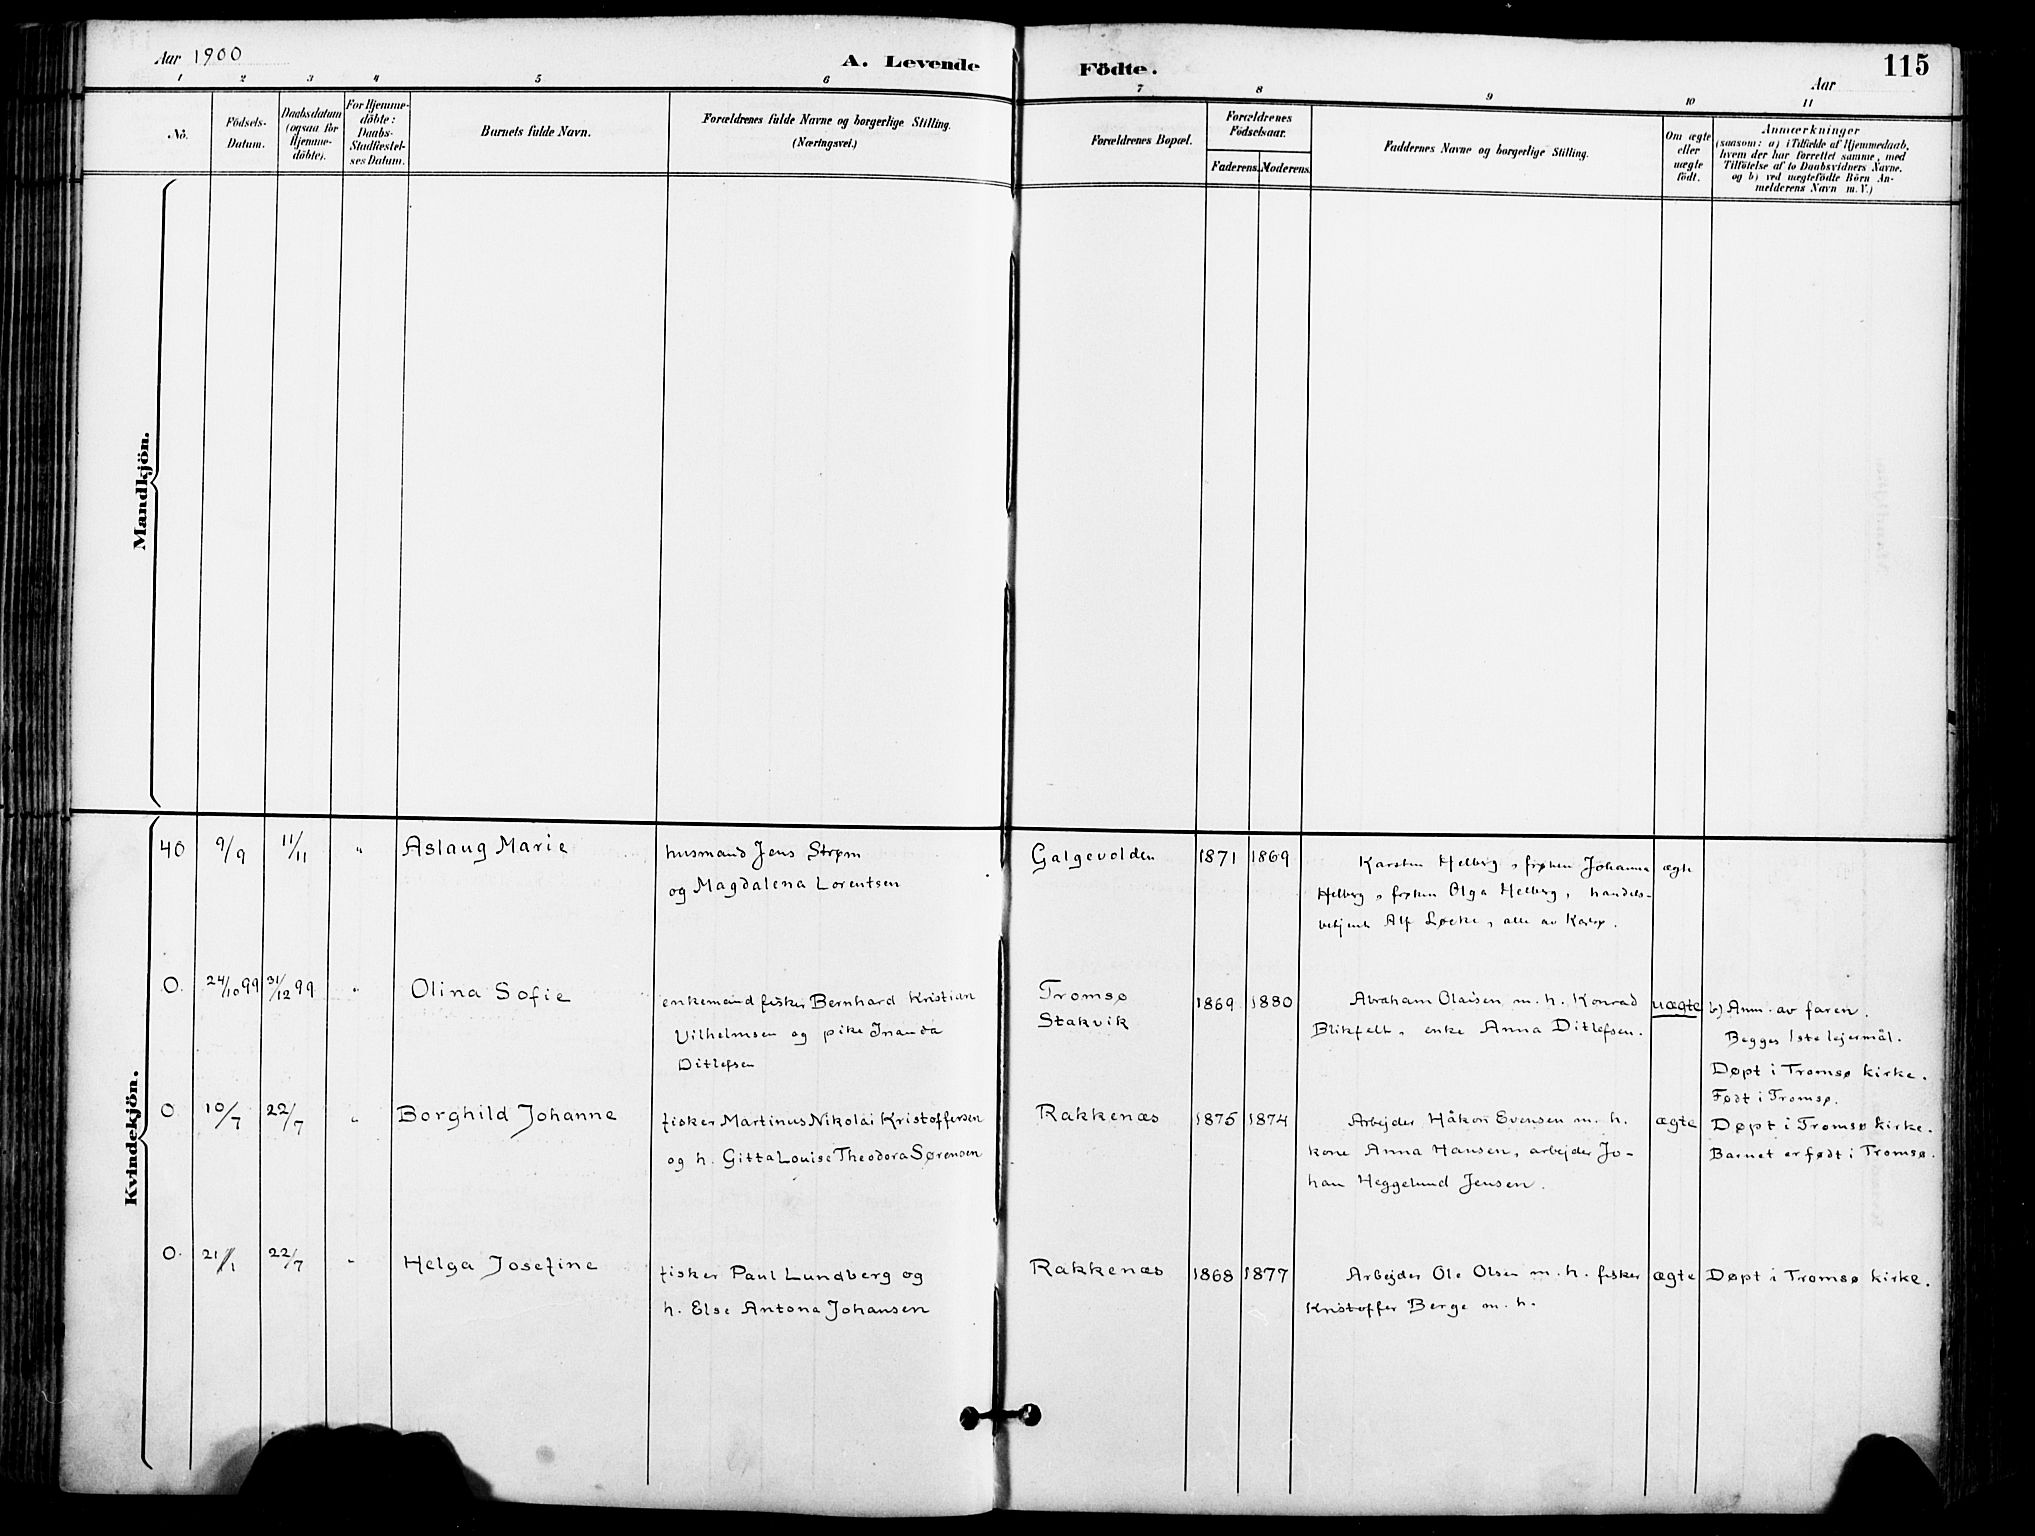 Aar 1900
A. Levende Födte.
Aar
115
1 2 3 4 5 6 7 8 9 10 11
No.
Födsels-
Datum.
Daabsdatum
(ogsaa for
Hjemme-
döbte).
For Hjemme-
döbte:
Daabs-
Stadfæstel-
ses Datum.
Barnets fulde Navn.
Forældrenes fulde Navne og borgerlige Stilling.
(Næringsvei.)
Forældrenes Bopæl.
Forældrenes
Födselsaar.
Faderens. Moderens.
Faddernes Navne og borgerlige Stilling.
Om ægte
eller
uægte
födt.
Anmærkninger
(saasom: a) i Tilfælde af Hjemmedaab,
hvem der har forrettet samme, med
Tilföielse af to Daabsvidners Navne.
og b) ved uægtefödte Börn An-
melderens Navn m. V.)
Mandkjön.
Kvindekjön.
40 9/9 11/11 " Aslaug Marie
husmand Jens Strøm
og Magdalena Lorentsen
Galgevolden 1871 1869
Karsten Helberg, frøken Johanna
Helberg, frøken Olga Helberg, handels-
betjent Alf Løcke, alle av
ægte
0. 24/10 99 31/12 99 " Olina Sofie
enkemand fisker Bernhard Kristian
Vilhelmsen og pike Inanda
Ditlefsen
Tromsø
Stakvik
1869 1880
Abraham Olaisen m. h. Konrad
Blikfelt, enke Anna Ditlefsen.
uægte
b) Anm. av faren.
Begges 1ste lejermål.
Døpt i Tromsø kirke.
Født i Tromsø.
0. 10/7 22/7 " Borghild Johanne
fisker Martinus Nikolai Kristoffersen
og h. Gitta Louise Theodora Sørensen
Rakkenæs 1875 1874
Arbejder Håkon Evensen m. h.
kone Anna Hansen, arbejder Jo-
han Heggelund Jensen.
ægte
Døpt i Tromsø kirke.
Barnet er født i Tromsø.
0. 21/1 22/7 " Helga Josefine
fisker Paul Lundberg og
h. Else Antona Johansen
Rakkenæs 1868 1877
Arbejder Ole Olsen m. h. fisker
Kristoffer Berge m. h.
ægte
Døpt i Tromsø kirke.